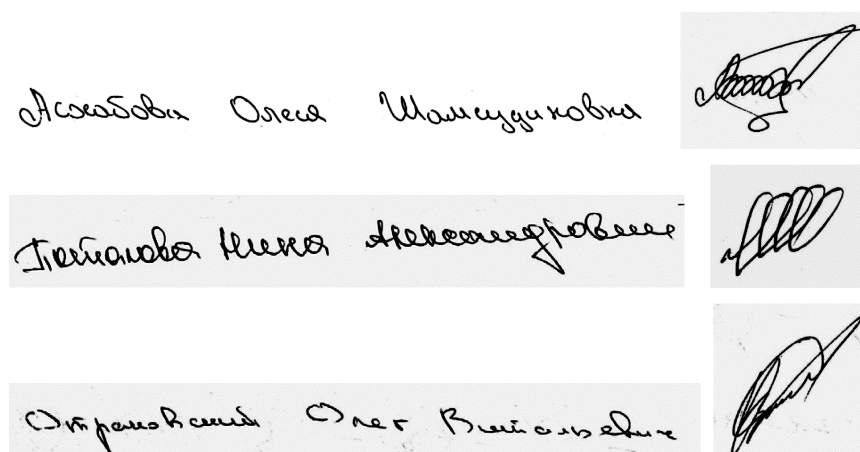 Асхабова Олеся Шамсудиновна
Потапова Нина Александровна
Отрановский Олег Витальевич